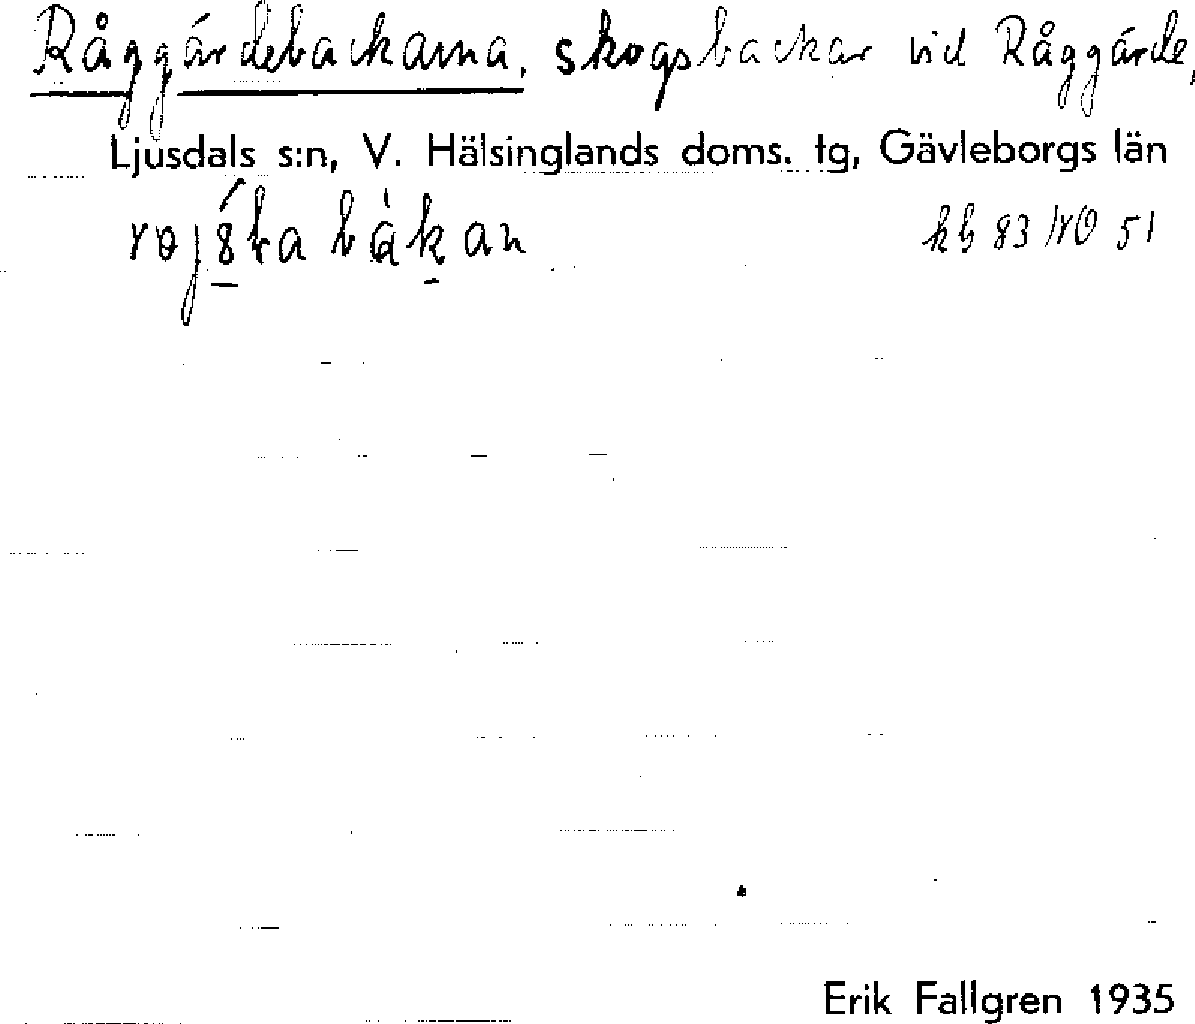 Råggärdebackarna, skogsbackar vid Råggärde,
Ljusdals s:n, V. Hälsinglands doms. tg, Gävleborgs län
bàkan 83 NO 51
Erik Fallgren 1935